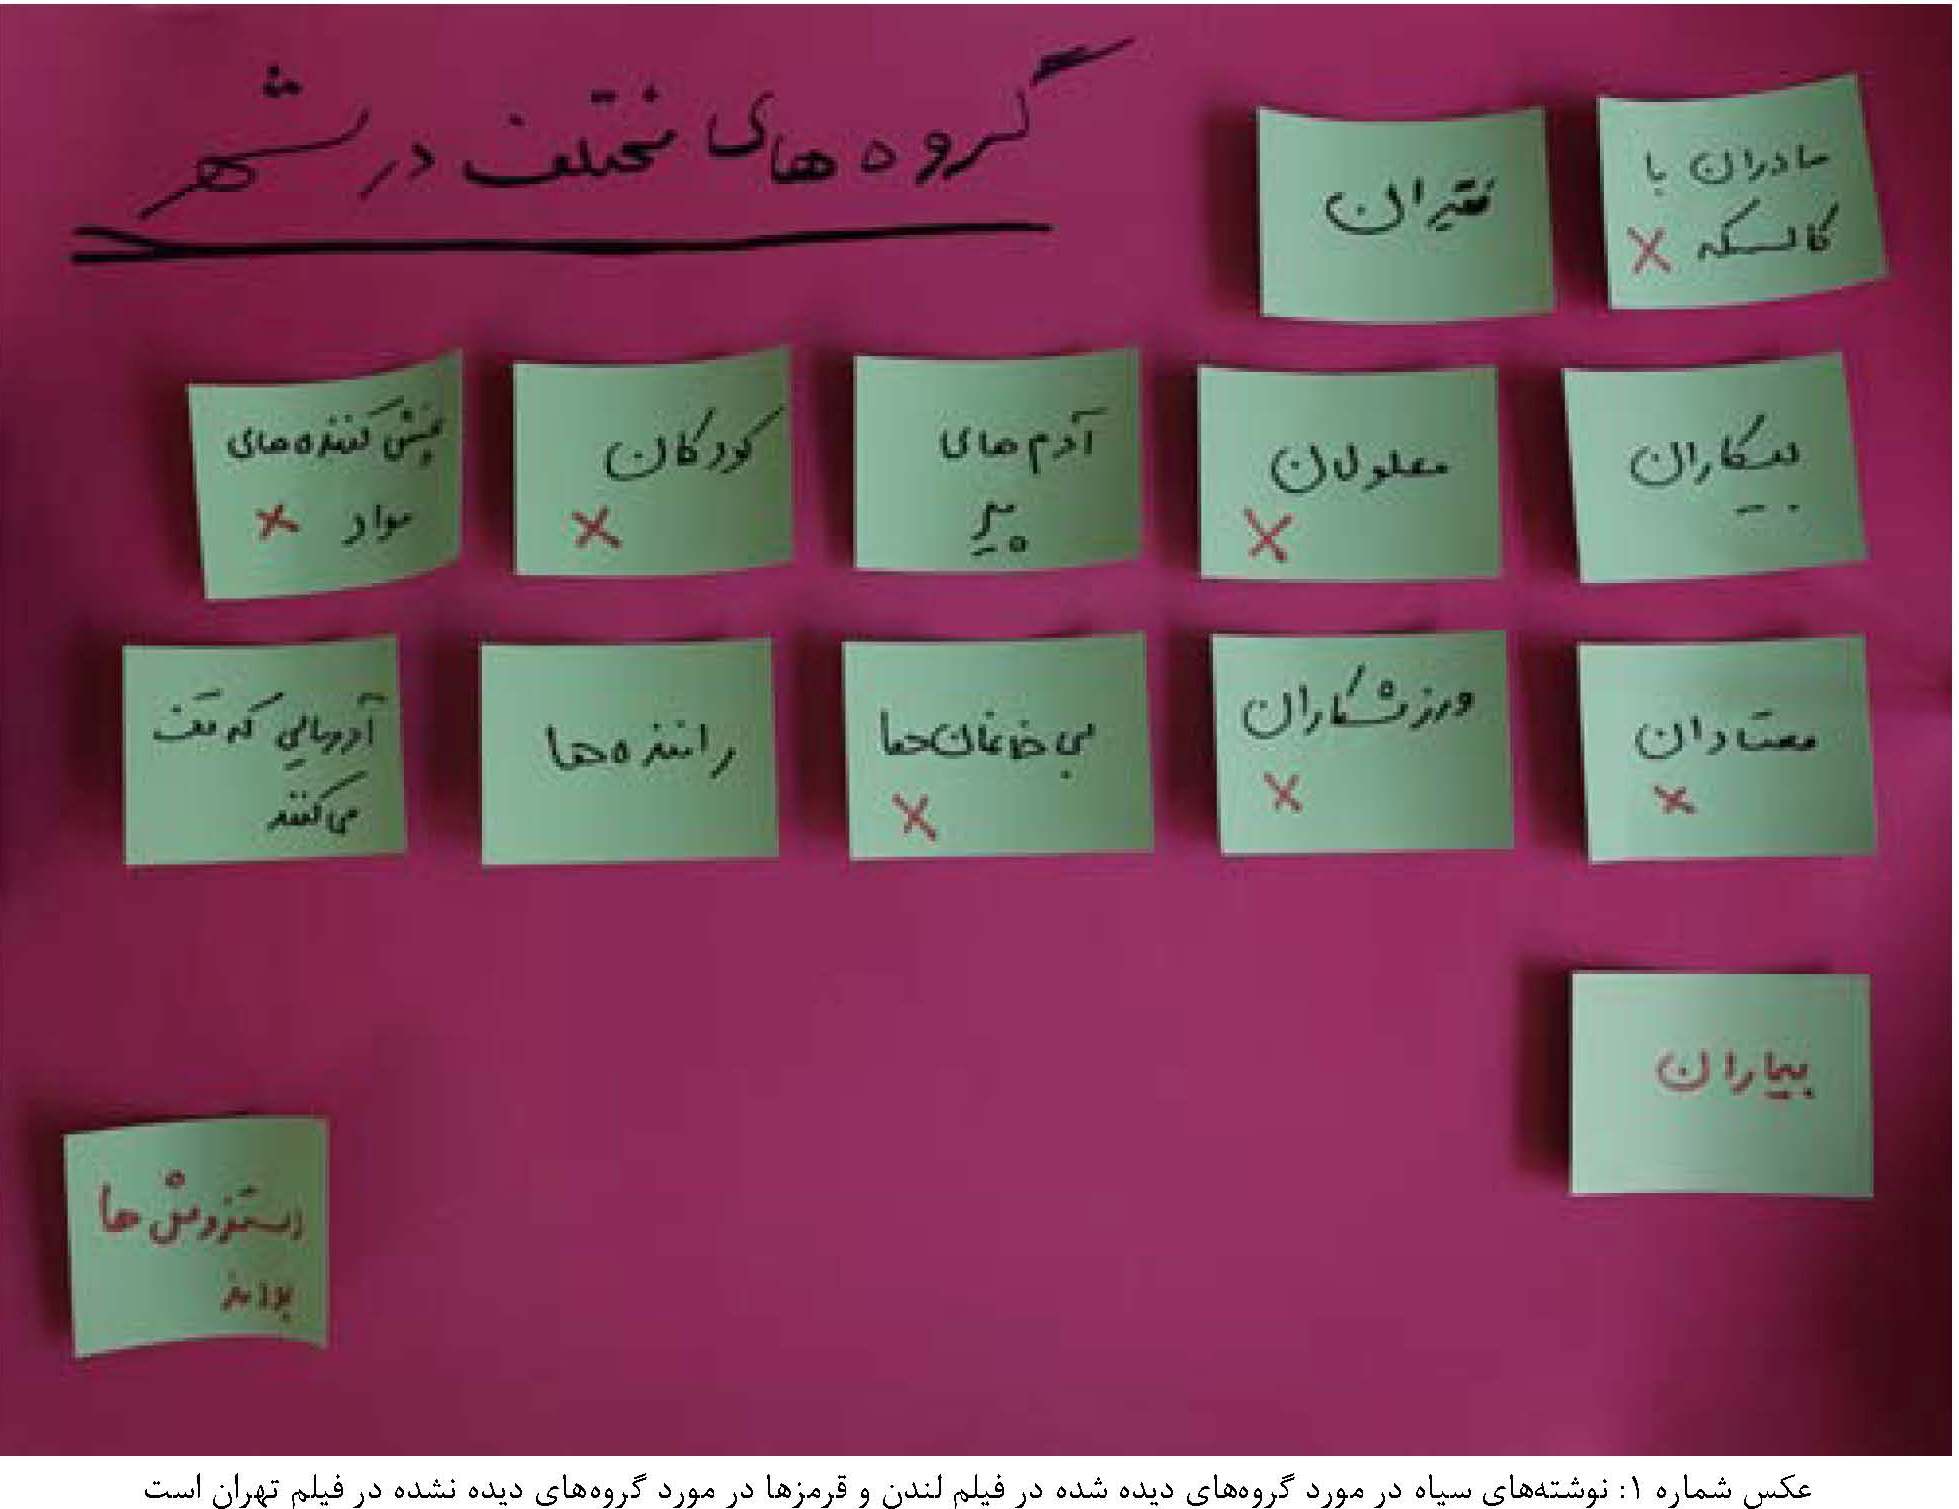 گروه های مختلف در شهر
مادران با
کالسکه X
فقیران
بیکاران
معلولان
X
آدم های
پیر
کودکان
X
پخش کننده های
مواد X
معتادان
X
ورزشکاران
X
بی خانمان ها
X
راننده ها
آدمهایی که
می کنند
بیماران
دستفروش ها
بودند
عکس شماره ۱: نوشته‌های سیاه در مورد گروه‌های دیده شده در فیلم لندن و قرمزها در مورد گروه‌های دیده نشده در فیلم تهران است